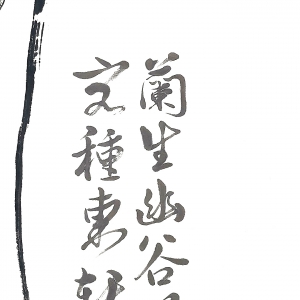 蘭生幽谷
文種東軒